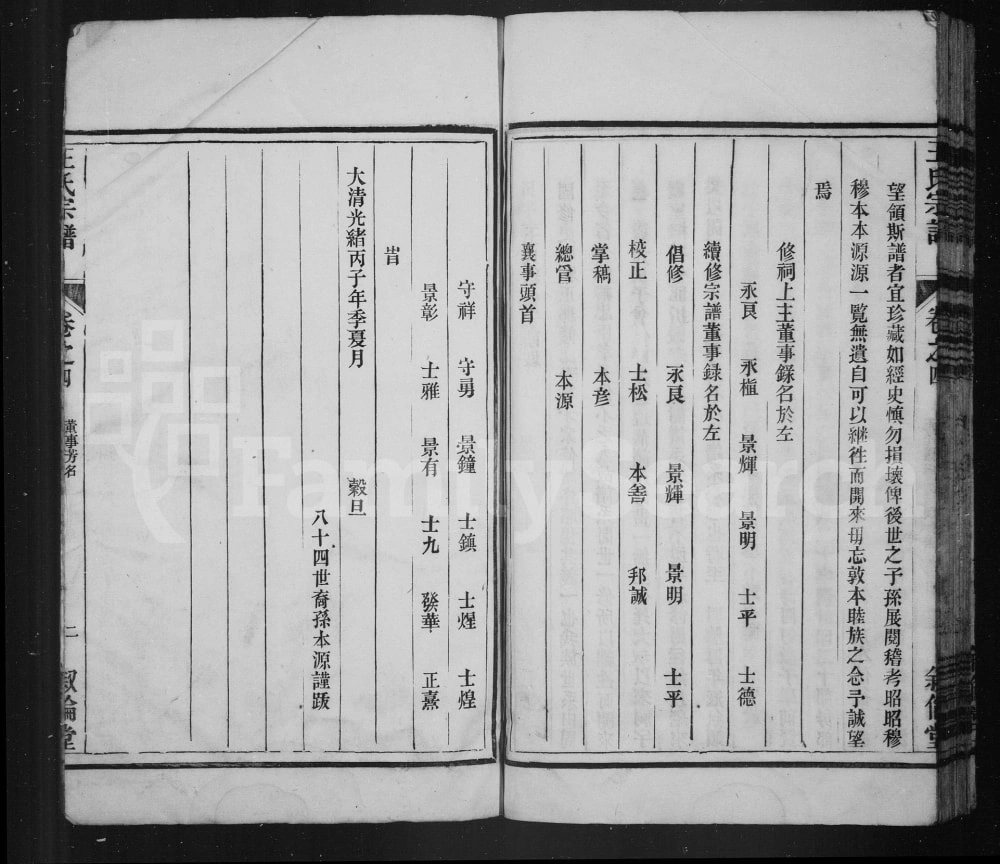 望領斯譜者宜珍藏如經史慎勿損壞俾後世之子孫展閱稽考昭昭穆
穆本本源源一覽無遺自可以継徃而開來毋忘敦本睦族之念予誠望
焉
修祠上主董事錄名於左
永良 永植 景輝 景明 士平 士德
續修宗譜董事録名於左
倡修 永良 景輝 景明 士平
校正 士松 本善 邦誠
掌稿 本彦
總管 本源
襄事頭首
守祥 守勇 景鐘 士鎮 士煋 士煌
景彰 士雅 景有 士九 發華 正熹
旹
大清光緒丙子年季夏月 穀旦
八十四世裔孫本源謹跋
王氏宗譜 卷之四 董事芳名 二 敘倫堂
王氏宗譜 卷之四 敘倫堂
FamilySearch